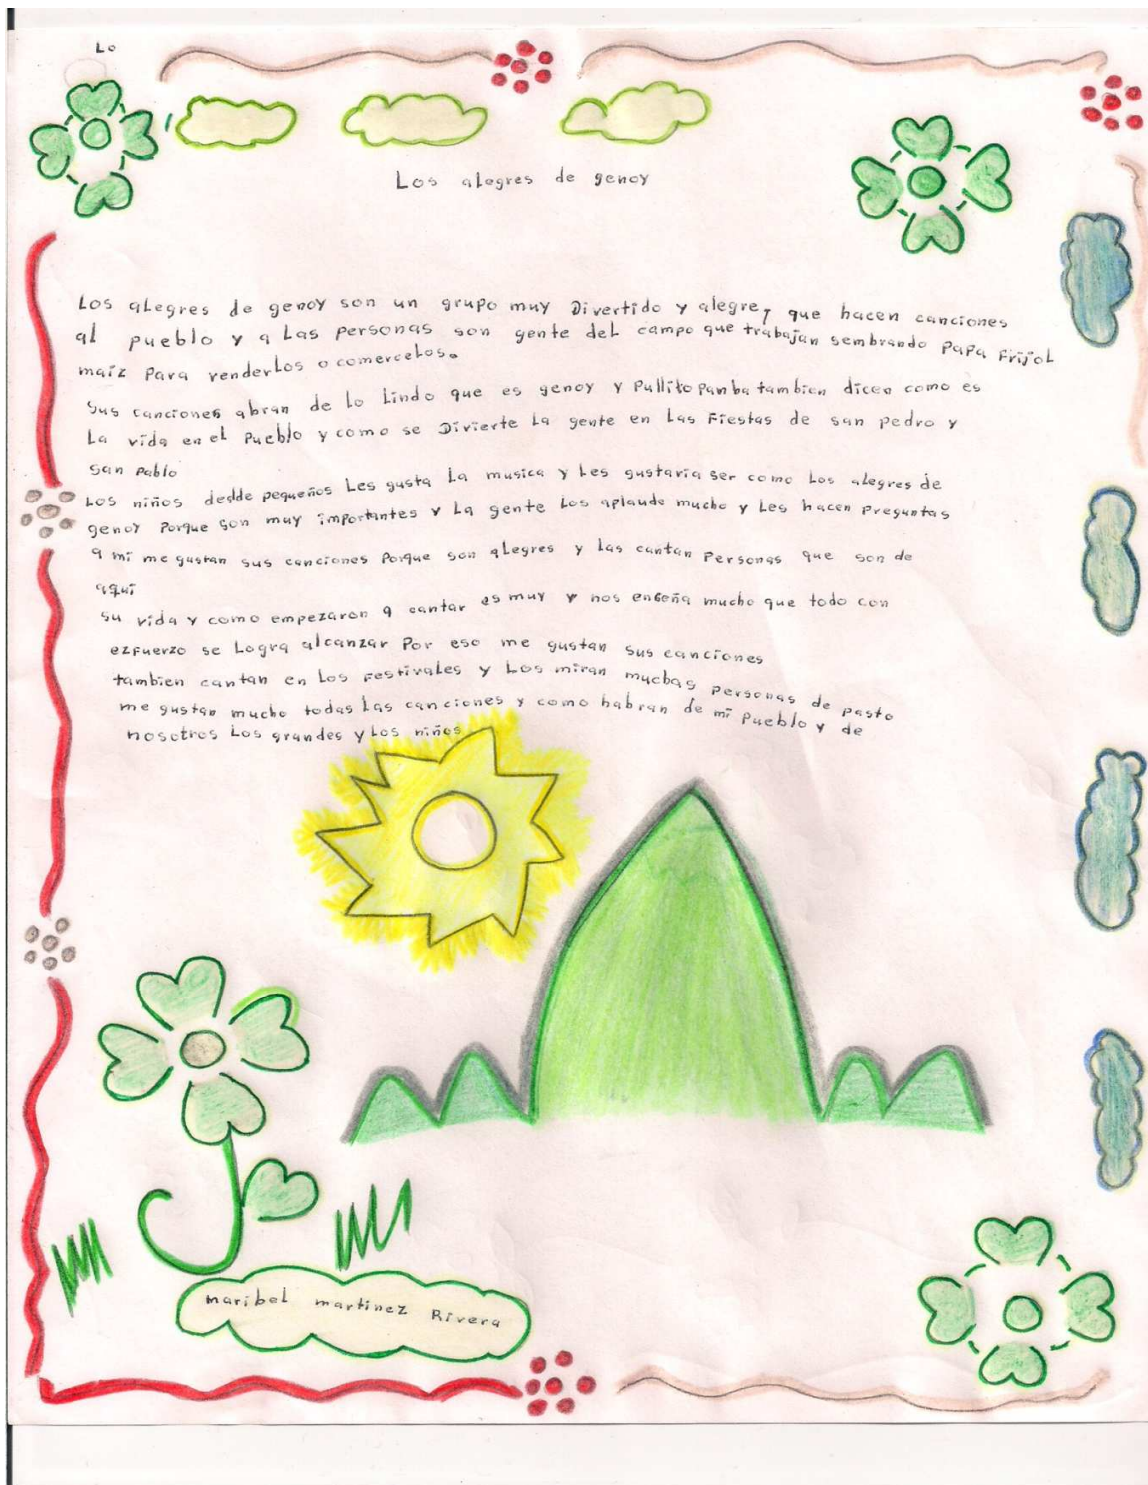 Lo
Los alegres de genoy
Los alegres de genoy son un grupo muy Divertido y alegre, que hacen canciones
al pueblo y a Las personas son gente del campo que trabajan sembrando papa Frijol
maiz para venderlos o comercelos.
Sus canciones abran de lo Lindo que es genoy y Pullitopamba tambien dicen como es
La vida en el Pueblo y como se Divierte La gente en Las Fiestas de san pedro y
San pablo
Los niños dedde pequeños Les gusta La musica y Les gustaria ser como Los alegres de
genoy Porque son muy importantes y La gente Los aplaude mucho y Les hacen preguntas
a mi me gustan sus canciones Porque son alegres y las cantan Personas que son de
aqui
Su vida y como empezaron a cantar es muy y nos enseña mucho que todo con
ezfuerzo se Logra alcanzar Por eso me gustan sus canciones
tambien cantan en Los Festivales y Los miran muchas personas de pasto
me gustan mucho todas Las canciones y como habran de mi Pueblo y de
nosotros Los grandes y Los niños
maribel martinez Rivera